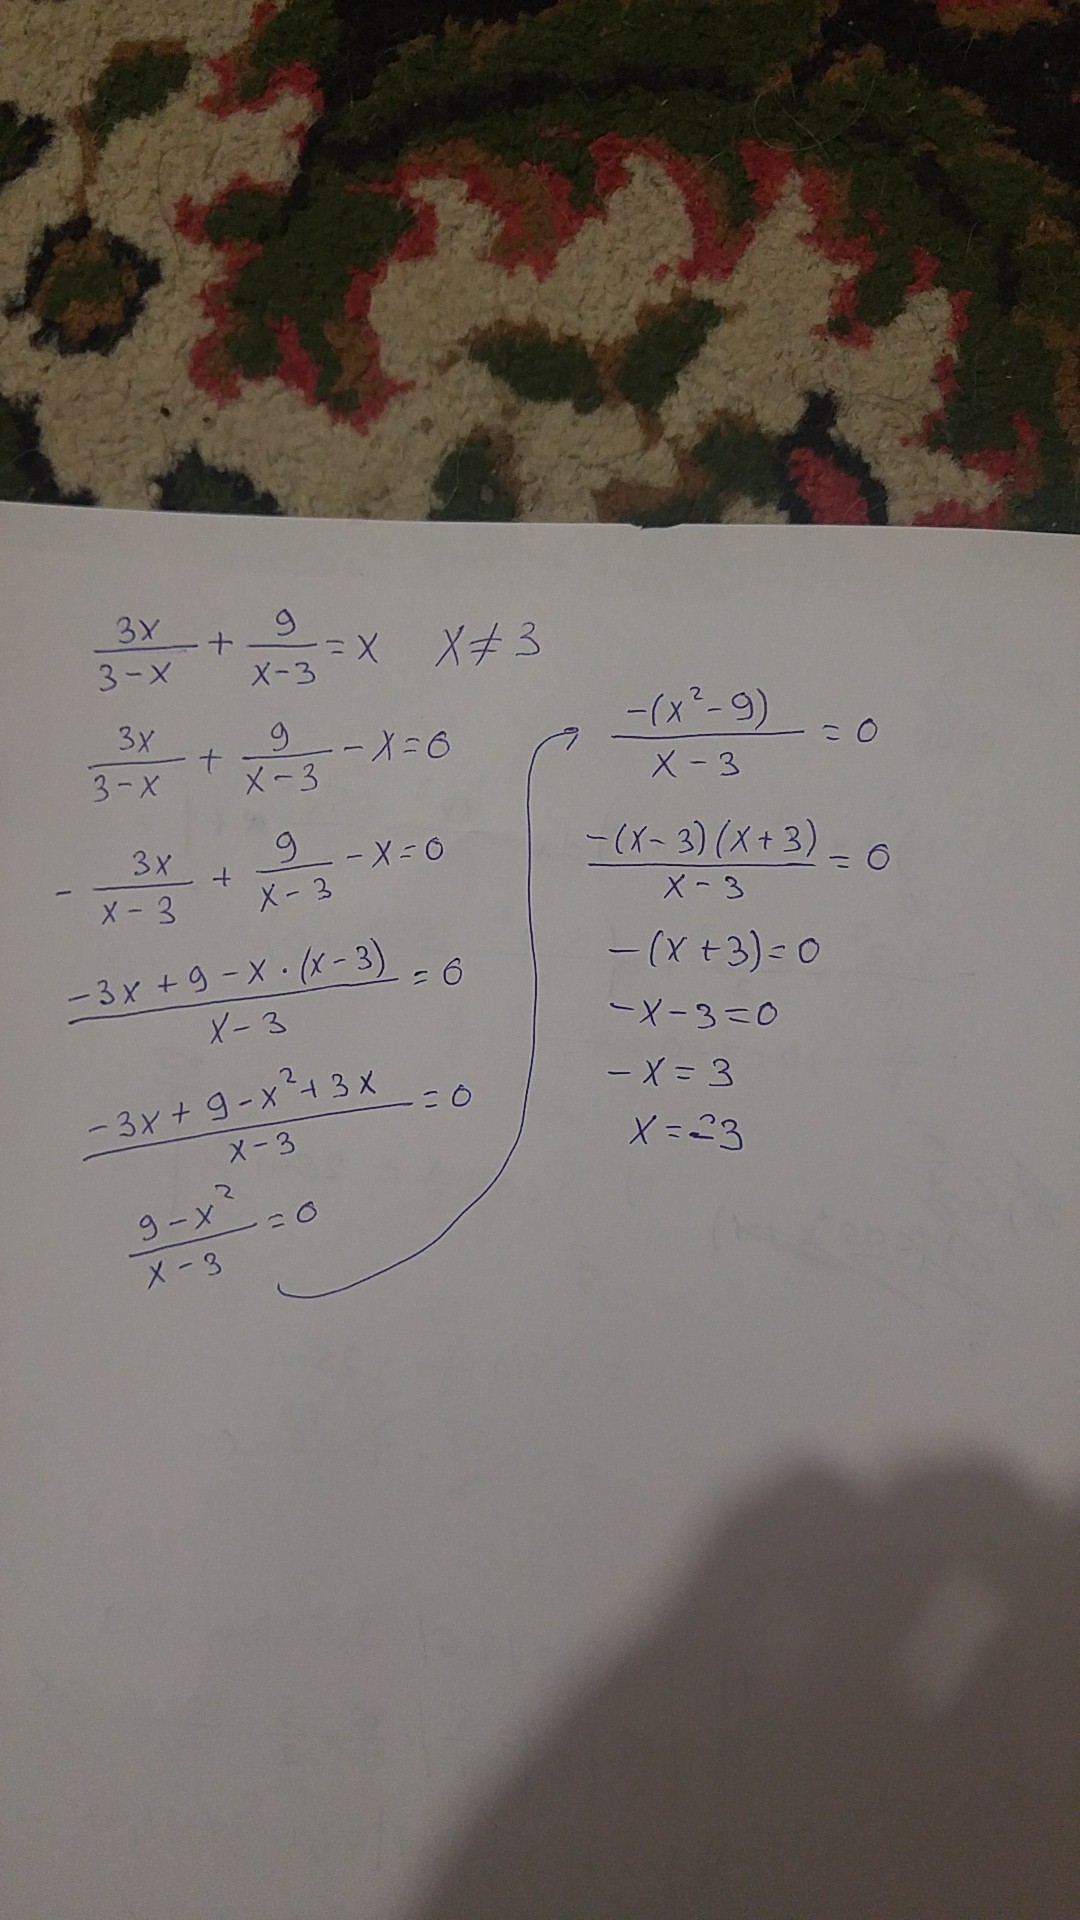 3x/(3-x) + 9/(x-3) = x   x ≠ 3
3x/(3-x) + 9/(x-3) - x = 0
- 3x/(x-3) + 9/(x-3) - x = 0
(-3x + 9 - x · (x-3))/(x-3) = 0
(-3x + 9 - x² + 3x)/(x-3) = 0
(9 - x²)/(x-3) = 0
-(x² - 9)/(x-3) = 0
-(x-3)(x+3)/(x-3) = 0
-(x+3) = 0
-x - 3 = 0
-x = 3
x = -3